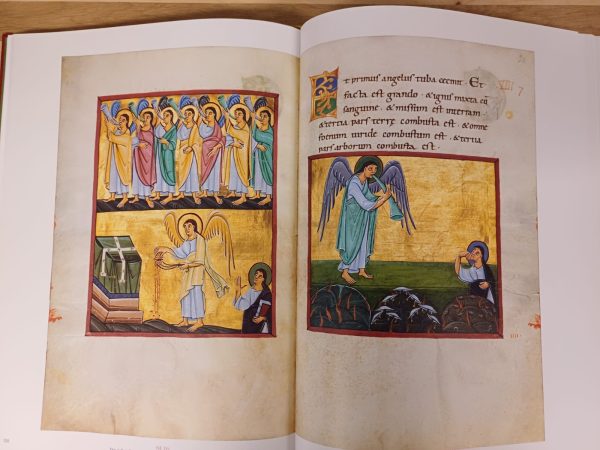 Et primus angelus tuba cecinit. Et
facta est grando . & ignis mixta cū
sanguine . & missum est interram .
& tertia pars terre combusta est . & omne
foenum uiride combustum est . & tertia
pars arborum combusta est .
VIII 7